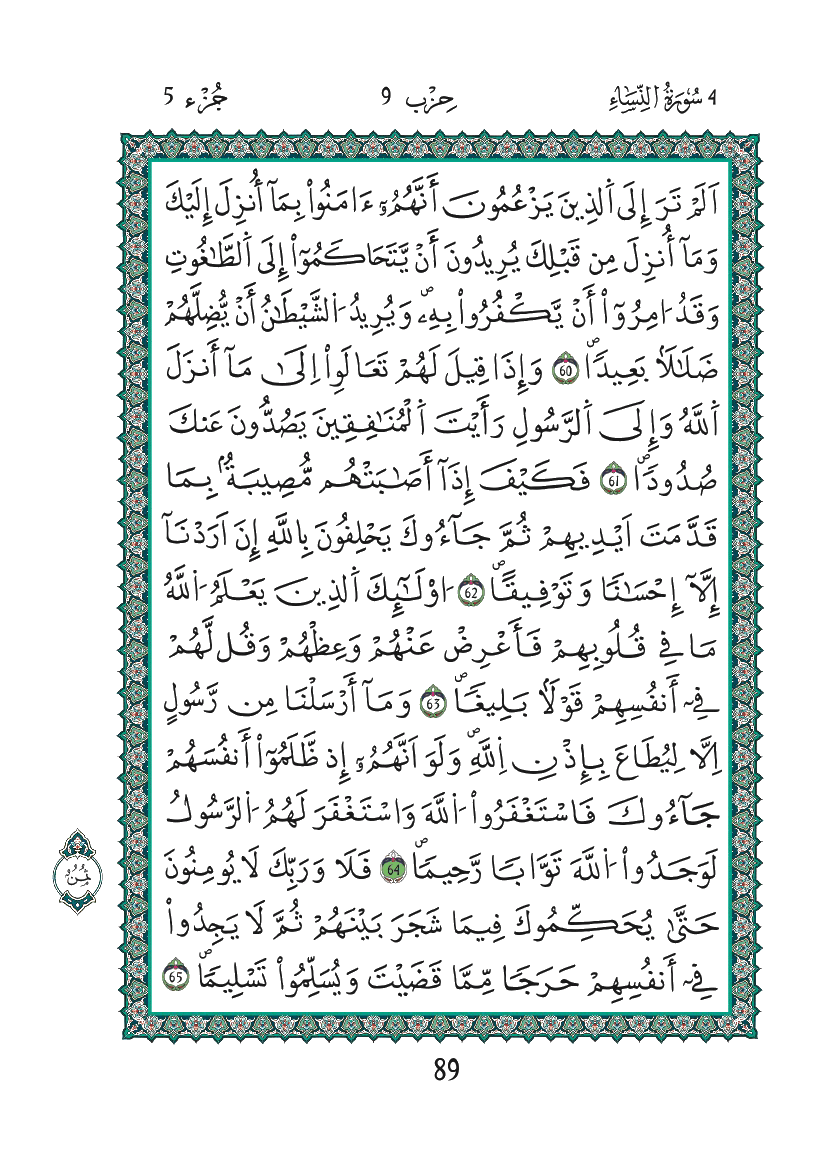 4 سُورَةُ النِّسَاءِ
حِزْب 9
جُزْء 5
اَلَمْ تَرَ إِلَى اَ۬لذِينَ يَزْعُمُونَ أَنَّهُمُۥٓ ءَامَنُواْ بِمَآ أُنزِلَ إِلَيْكَ
وَمَآ أُنزِلَ مِن قَبْلِكَ يُرِيدُونَ أَنْ يَّتَحَاكَمُوٓاْ إِلَى اَ۬لطَّٰغُوتِ
وَقَدُ ا۟مِرُوٓاْ أَنْ يَّكْفُرُواْ بِهِۦۖ وَيُرِيدُ اُ۬لشَّيْطَٰنُ أَنْ يُّضِلَّهُمْ
ضَلَٰلاَۢ بَعِيداٗۖ 60 وَإِذَا قِيلَ لَهُمْ تَعَالَوِاْ اِلَىٰ مَآ أَنزَلَ
اَ۬للَّهُ وَإِلَى اَ۬لرَّسُولِ رَأَيْتَ اَ۬لْمُنَٰفِقِينَ يَصُدُّونَ عَنكَ
صُدُوداٗۖ 61 فَكَيْفَ إِذَآ أَصَٰبَتْهُم مُّصِيبَةُۢ بِمَا
قَدَّمَتَ اَيْدِيهِمْ ثُمَّ جَآءُوكَ يَحْلِفُونَ بِاللَّهِ إِنَ اَرَدْنَآ
إِلَّآ إِحْسَٰناٗ وَتَوْفِيقاًۖ 62 ا۟وْلَٰٓئِكَ اَ۬لذِينَ يَعْلَمُ اُ۬للَّهُ
مَا فِے قُلُوبِهِمْ فَأَعْرِضْ عَنْهُمْ وَعِظْهُمْ وَقُل لَّهُمْ
فِےٓ أَنفُسِهِمْ قَوْلاَۢ بَلِيغاٗۖ 63 وَمَآ أَرْسَلْنَا مِن رَّسُولٍ
اِلَّا لِيُطَاعَ بِإِذْنِ اِ۬للَّهِۖ وَلَوَ اَنَّهُمُۥٓ إِذ ظَّلَمُوٓاْ أَنفُسَهُمْ
جَآءُوكَ فَاسْتَغْفَرُواْ اُ۬للَّهَ وَاسْتَغْفَرَ لَهُمُ اُ۬لرَّسُولُ
لَوَجَدُواْ اُ۬للَّهَ تَوَّاباٗ رَّحِيماٗۖ 64 فَلَا وَرَبِّكَ لَا يُومِنُونَ
ثُمُنُ
حَتَّىٰ يُحَكِّمُوكَ فِيمَا شَجَرَ بَيْنَهُمْ ثُمَّ لَا يَجِدُواْ
فِےٓ أَنفُسِهِمْ حَرَجاٗ مِّمَّا قَضَيْتَ وَيُسَلِّمُواْ تَسْلِيماٗۖ 65
89